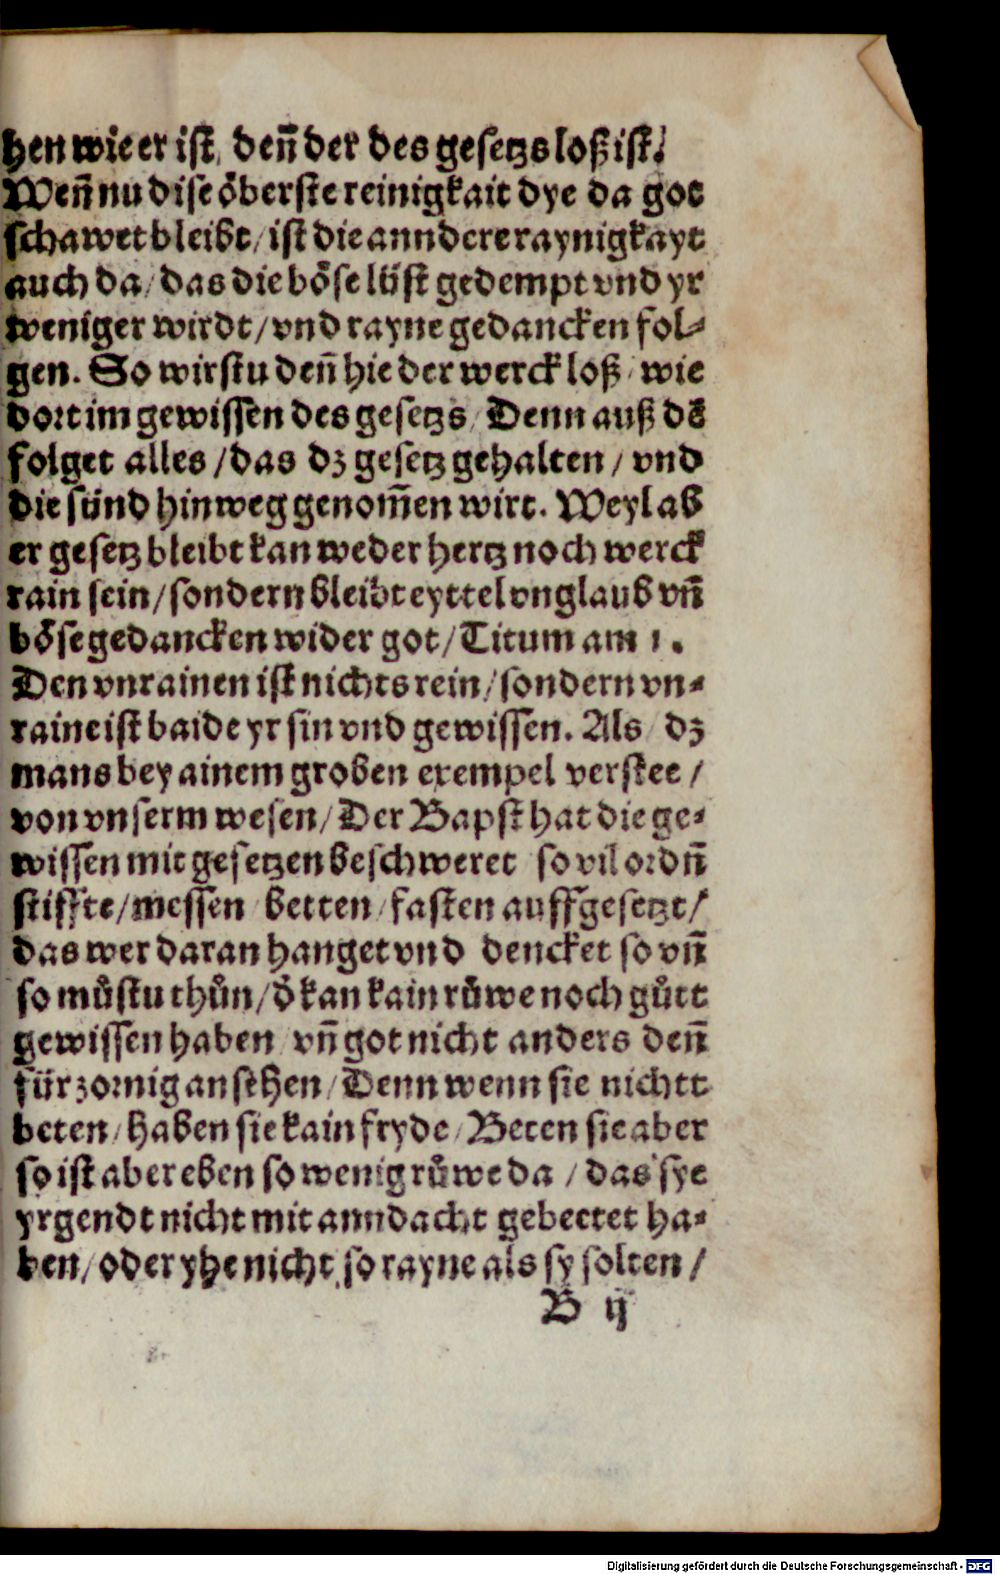 hen wie er ist, deñ der des gesetzs loß ist.
Weñ nu dise öberste reinigkait dye da got
schawet bleibt / ist die anndere raynigkayt
auch da / das die böse lüst gedempt vnd yr
weniger wirdt / vnd rayne gedancken fol-
gen. So wirstu deñ hie der werck loß / wie
dort im gewissen des gesetzs / Denn auß dē
folget alles / das dz gesetz gehalten / vnd
die sünd hinweg genom̃en wirt. Weyl ab
er gesetz bleibt kan weder hertz noch werck
rain sein / sondern bleibt eyttel vnglaub vñ
böse gedancken wider got / Titum am 1.
Den vnrainen ist nichts rein / sondern vn-
raine ist baide yr sin vnd gewissen. Als / dz
mans bey ainem groben exempel verstee /
von vnserm wesen / Der Bapst hat die ge-
wissen mit gesetzen beschweret so vil ordñ
stiffte / messen / betten / fasten auffgesetzt /
das wer daran hanget vnd dencket so vñ
so můstu thůn / ð kan kain růwe noch gůtt
gewissen haben / vñ got nicht anders deñ
für zornig ansehen / Denn wenn sie nichtt
beten / haben sie kain fryde / Beten sie aber
so ist aber eben so wenig růwe da / das sye
yrgendt nicht mit anndacht gebettet ha-
ben / oder yhe nicht so rayne als sy solten /
B ij
Digitalisierung gefördert durch die Deutsche Forschungsgemeinschaft - DFG